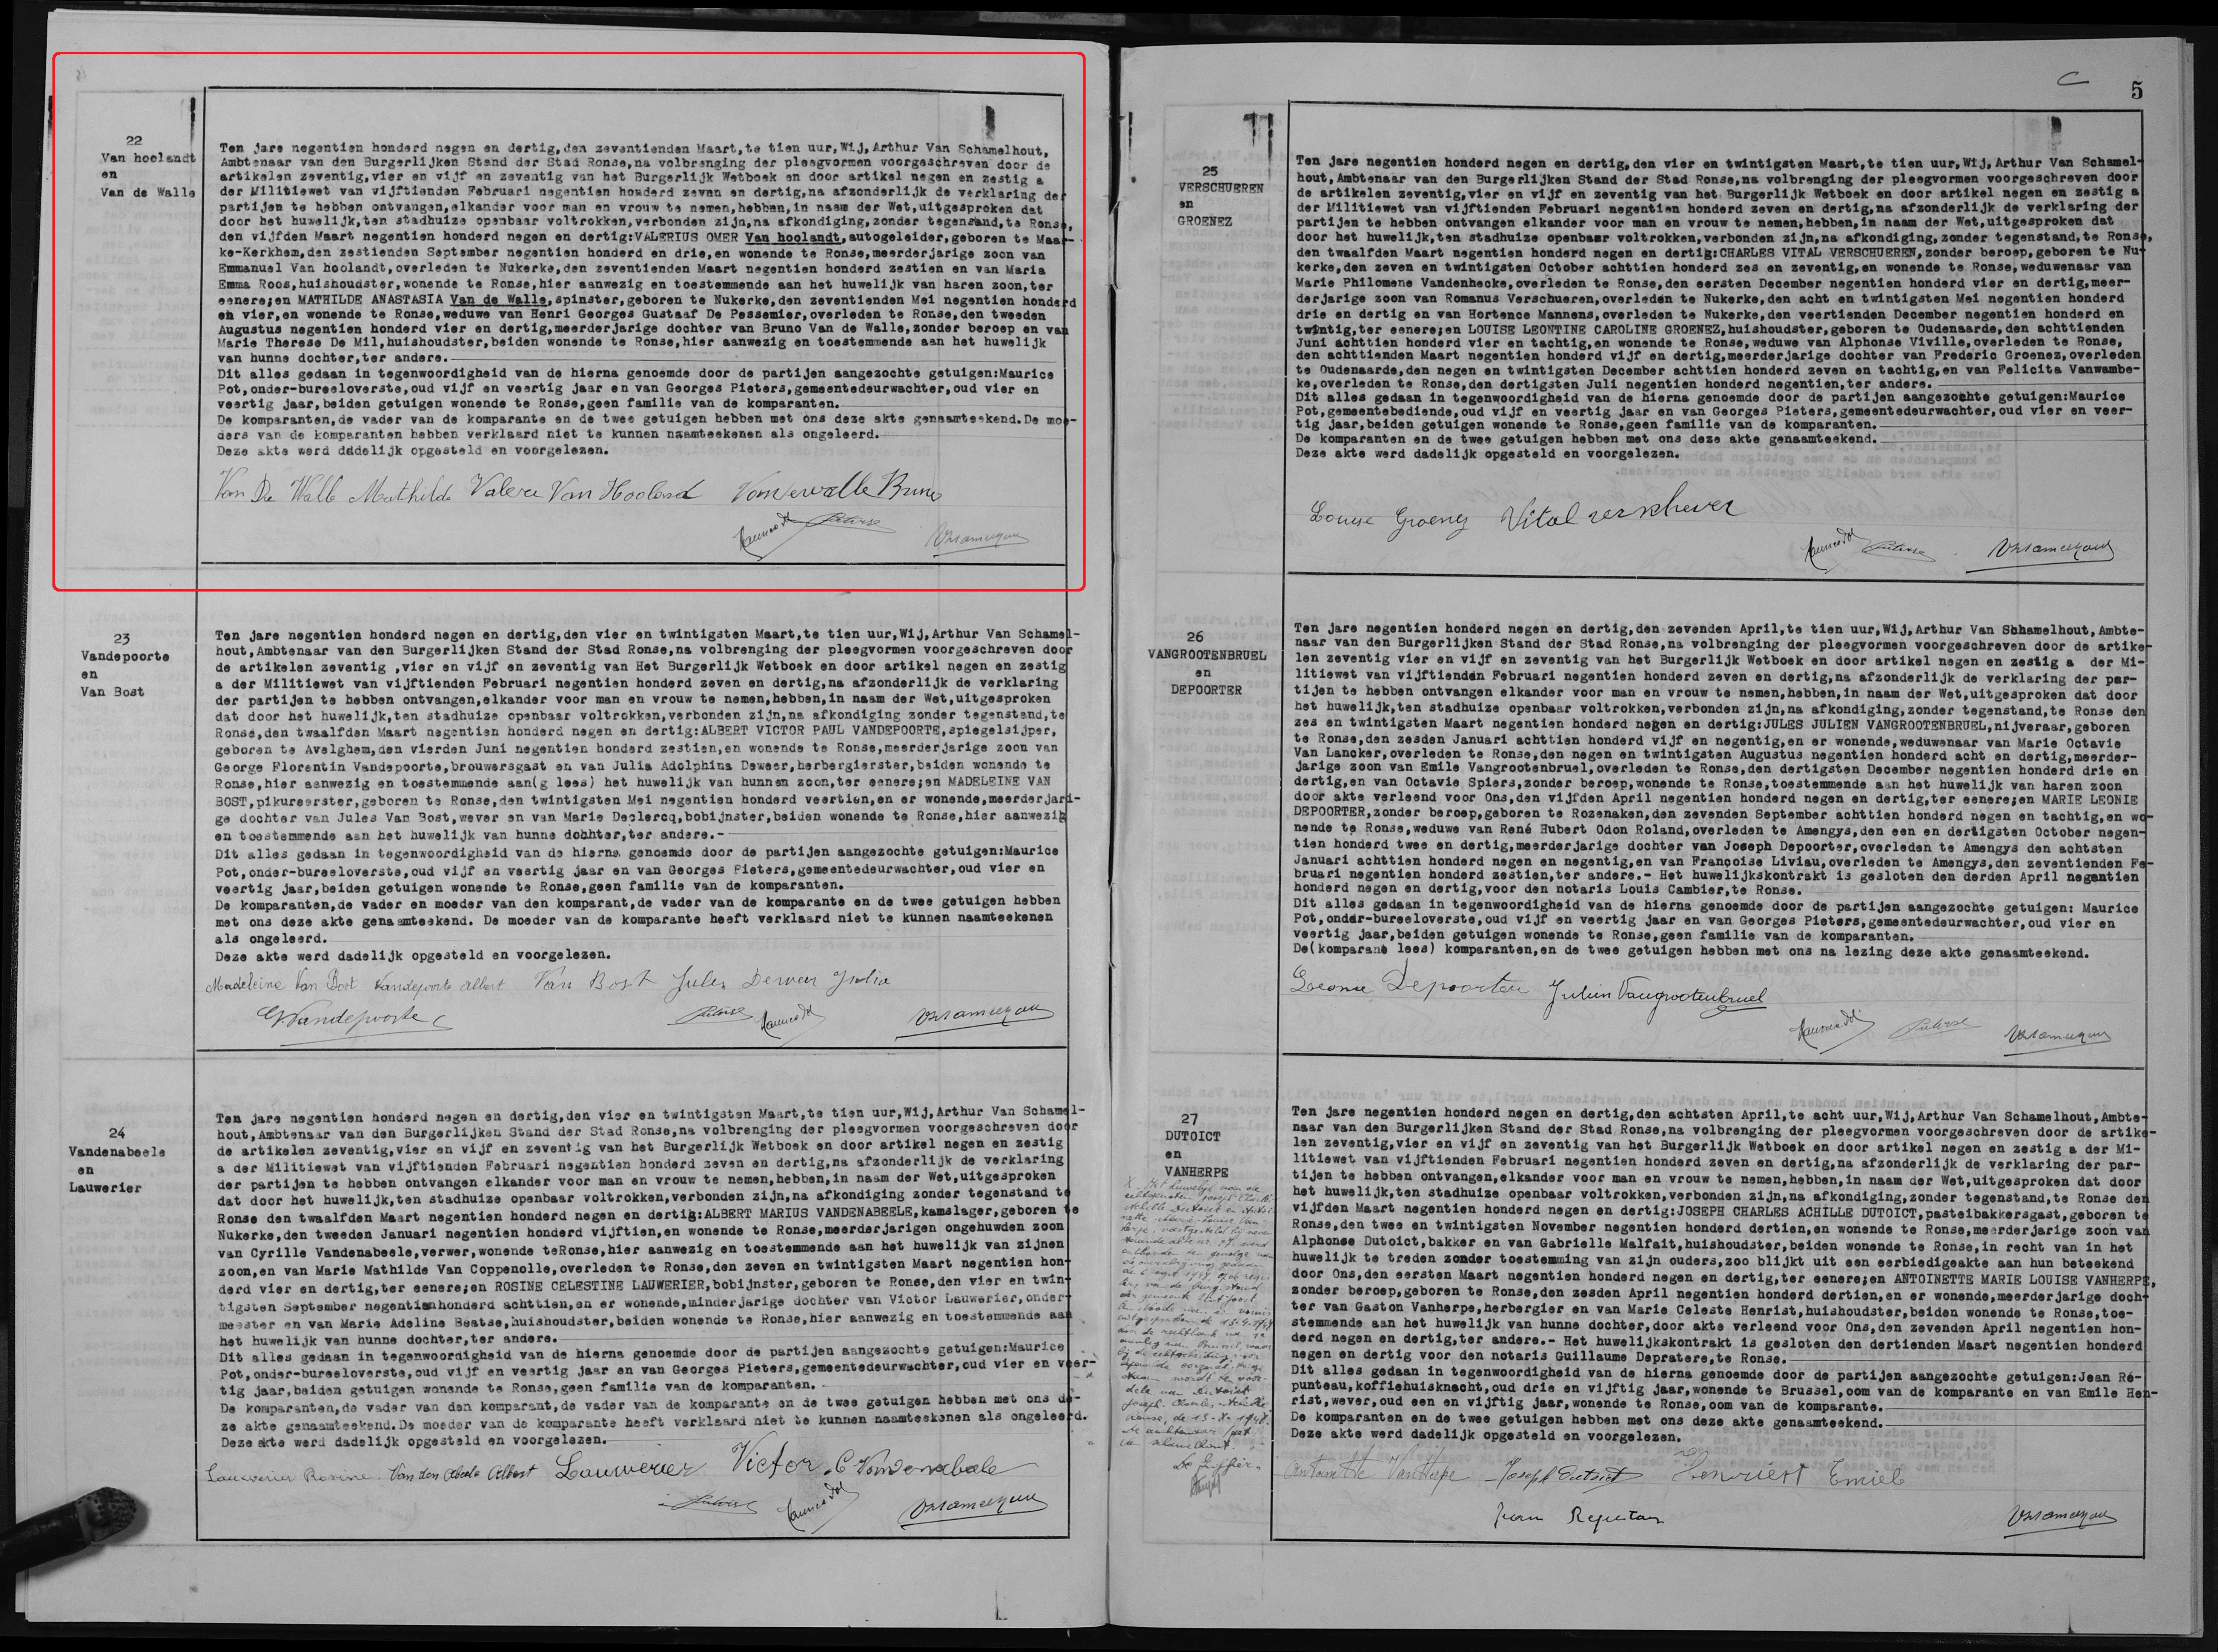 22
Van hoolandt
en
Van de Walle
Ten jare negentien honderd negen en dertig,den zeventienden Maart,te tien uur,Wij,Arthur Van Schamelhout,
Ambtenaar van den Burgerlijken Stand der Stad Ronse,na volbrenging der pleegvormen voorgeschreven door de
artikelen zeventig,vier en vijf en zeventig van het Burgerlijk Wetboek en door artikel negen en zestig a
der Militiewet van vijftienden Februari negentien honderd zeven en dertig,na afzonderlijk de verklaring der
partijen te hebben ontvangen,elkander voor man en vrouw te nemen,hebben,in naam der Wet,uitgesproken dat
door het huwelijk,ten stadhuize openbaar voltrokken,verbonden zijn,na afkondiging,zonder tegenstand,te Ronse,
den vijfden Maart negentien honderd negen en dertig:VALERIUS OMER Van hoolandt,autogeleider,geboren te Maar-
ke-Kerkhem,den zestienden September negentien honderd en drie,en wonende te Ronse,meerderjarige zoon van
Emmanuel Van hoolandt,overleden te Nukerke,den zeventienden Maart negentien honderd zestien en van Maria
Emma Roos,huishoudster,wonende te Ronse,hier aanwezig en toestemmende aan het huwelijk van haren zoon,ter
eenere;en MATHILDE ANASTASIA Van de Walle,spinster,geboren te Nukerke,den zeventienden Mei negentien honderd
en vier,en wonende te Ronse,weduwe van Henri Georges Gustaaf De Pessemier,overleden te Ronse,den tweeden
Augustus negentien honderd vier en dertig,meerderjarige dochter van Bruno Van de Walle,zonder beroep en van
Marie Therese De Mil,huishoudster,beiden wonende te Ronse,hier aanwezig en toestemmende aan het huwelijk
van hunne dochter,ter andere.
Dit alles gedaan in tegenwoordigheid van de hierna genoemde door de partijen aangezochte getuigen:Maurice
Pot,onder-bureeloverste,oud vijf en veertig jaar en van Georges Pieters,gemeentedeurwachter,oud vier en
veertig jaar,beiden getuigen wonende te Ronse,geen familie van de komparanten.
De komparanten,de vader van de komparante en de twee getuigen hebben met ons deze akte genaamteekend.De moe-
ders van de komparanten hebben verklaard niet te kunnen naamteekenen als ongeleerd.
Deze akte werd dadelijk opgesteld en voorgelezen.
Van De Walle Mathilde Valere Van Hooland Vandewalle Bruno
23
Vandepoorte
en
Van Bost
Ten jare negentien honderd negen en dertig,den vier en twintigsten Maart,te tien uur,Wij,Arthur Van Schamel-
hout,Ambtenaar van den Burgerlijken Stand der Stad Ronse,na volbrenging der pleegvormen voorgeschreven door
de artikelen zeventig ,vier en vijf en zeventig van Het Burgerlijk Wetboek en door artikel negen en zestig
a der Militiewet van vijftienden Februari negentien honderd zeven en dertig,na afzonderlijk de verklaring
der partijen te hebben ontvangen,elkander voor man en vrouw te nemen,hebben,in naam der Wet,uitgesproken
dat door het huwelijk,ten stadhuize openbaar voltrokken,verbonden zijn,na afkondiging zonder tegenstand,te
Ronse,den twaalfden Maart negentien honderd negen en dertig:ALBERT VICTOR PAUL VANDEPOORTE,spiegelsijper,
geboren te Avelghem,den vierden Juni negentien honderd zestien,en wonende te Ronse,meerderjarige zoon van
George Florentin Vandepoorte,brouwersgast en van Julia Adolphina Deweer,herbergierster,beiden wonende te
Ronse,hier aanwezig en toestemmende aan(g lees) het huwelijk van hunnen zoon,ter eenere;en MADELEINE VAN
BOST,pikureerster,geboren te Ronse,den twintigsten Mei negentien honderd veertien,en er wonende,meerderjari-
ge dochter van Jules Van Bost,wever en van Marie Declercq,bobijnster,beiden wonende te Ronse,hier aanwezig
en toestemmende aan het huwelijk van hunne dochter,ter andere.-
Dit alles gedaan in tegenwoordigheid van de hierna genoemde door de partijen aangezochte getuigen:Maurice
Pot,onder-bureeloverste,oud vijf en veertig jaar en van Georges Pieters,gemeentedeurwachter,oud vier en
veertig jaar,beiden getuigen wonende te Ronse,geen familie van de komparanten.
De komparanten,de vader en moeder van den komparant,de vader van de komparante en de twee getuigen hebben
met ons deze akte genaamteekend. De moeder van de komparante heeft verklaard niet te kunnen naamteekenen
als ongeleerd.
Deze akte werd dadelijk opgesteld en voorgelezen.
Madeleine Van Bost Vandepoorte Albert Van Bost Jules Deweer Julia
GVandepoorte
24
Vandenabeele
en
Lauwerier
Ten jare negentien honderd negen en dertig,den vier en twintigsten Maart,te tien uur,Wij,Arthur Van Schamel-
hout,Ambtenaar van den Burgerlijken Stand der Stad Ronse,na volbrenging der pleegvormen voorgeschreven door
de artikelen zeventig,vier en vijf en zeventig van het Burgerlijk Wetboek en door artikel negen en zestig
a der Militiewet van vijftienden Februari negentien honderd zeven en dertig,na afzonderlijk de verklaring
der partijen te hebben ontvangen elkander voor man en vrouw te nemen,hebben,in naam der Wet,uitgesproken
dat door het huwelijk,ten stadhuize openbaar voltrokken,verbonden zijn,na afkondiging zonder tegenstand te
Ronse den twaalfden Maart negentien honderd negen en dertig:ALBERT MARIUS VANDENABEELE,kamslager,geboren te
Nukerke,den tweeden Januari negentien honderd vijftien,en wonende te Ronse,meerderjarigen ongehuwden zoon
van Cyrille Vandenabeele,verwer,wonende teRonse,hier aanwezig en toestemmende aan het huwelijk van zijnen
zoon,en van Marie Mathilde Van Coppenolle,overleden te Ronse,den zeven en twintigsten Maart negentien hon-
derd vier en dertig,ter eenere;en ROSINE CELESTINE LAUWERIER,bobijnster,geboren te Ronse,den vier en twin-
tigsten September negentienhonderd achttien,en er wonende,minderjarige dochter van Victor Lauwerier,onder-
meester en van Marie Adeline Beatse,huishoudster,beiden wonende te Ronse,hier aanwezig en toestemmende aan
het huwelijk van hunne dochter,ter andere.
Dit alles gedaan in tegenwoordigheid van de hierna genoemde door de partijen aangezochte getuigen:Maurice
Pot,onder-bureeloverste,oud vijf en veertig jaar en van Georges Pieters,gemeentedeurwachter,oud vier en veer-
tig jaar,beiden getuigen wonende te Ronse,geen familie van de komparanten.
De komparanten,de vader van den komparant,de vader van de komparante en de twee getuigen hebben met ons de-
ze akte genaamteekend.De moeder van de komparante heeft verklaard niet te kunnen naamteekenen als ongeleerd.
Deze akte werd dadelijk opgesteld en voorgelezen.
Lauwerier Rosine Van den Abeele Albert Lauwerier Victor C Vandenabeele
C
5
25
VERSCHUEREN
en
GROENEZ
Ten jare negentien honderd negen en dertig,den vier en twintigsten Maart,te tien uur,Wij,Arthur Van Schamel-
hout,Ambtenaar van den Burgerlijken Stand der Stad Ronse,na volbrenging der pleegvormen voorgeschreven door
de artikelen zeventig,vier en vijf en zeventig van het Burgerlijk Wetboek en door artikel negen en zestig a
der Militiewet van vijftienden Februari negentien honderd zeven en dertig,na afzonderlijk de verklaring der
partijen te hebben ontvangen elkander voor man en vrouw te nemen,hebben,in naam der Wet,uitgesproken dat
door het huwelijk,ten stadhuize openbaar voltrokken,verbonden zijn,na afkondiging,zonder tegenstand,te Ronse,
den twaalfden Maart negentien honderd negen en dertig:CHARLES VITAL VERSCHUEREN,zonder beroep,geboren te Nu-
kerke,den zeven en twintigsten October achttien honderd zes en zeventig,en wonende te Ronse,weduwenaar van
Marie Philomene Vandenhecke,overleden te Ronse,den eersten December negentien honderd vier en dertig,meer-
derjarige zoon van Romanus Verschueren,overleden te Nukerke,den acht en twintigsten Mei negentien honderd
drie en dertig en van Hortence Mannens,overleden te Nukerke,den veertienden December negentien honderd en
twintig,ter eenere;en LOUISE LEONTINE CAROLINE GROENEZ,huishoudster,geboren te Oudenaarde,den achttienden
Juni achttien honderd vier en tachtig,en wonende te Ronse,weduwe van Alphonse Viville,overleden te Ronse,
den achttienden Maart negentien honderd vijf en dertig,meerderjarige dochter van Frederic Groenez,overleden
te Oudenaarde,den negen en twintigsten December achttien honderd zeven en tachtig,en van Felicita Vanwambe-
ke,overleden te Ronse,den dertigsten Juli negentien honderd negentien,ter andere.
Dit alles gedaan in tegenwoordigheid van de hierna genoemde door de partijen aangezochte getuigen:Maurice
Pot,gemeentebediende,oud vijf en veertig jaar en van Georges Pieters,gemeentedeurwachter,oud vier en veer-
tig jaar,beiden getuigen wonende te Ronse,geen familie van de komparanten.
De komparanten en de twee getuigen hebben met ons deze akte genaamteekend.
Deze akte werd dadelijk opgesteld en voorgelezen.
Louise Groenez Vital verschueren
26
VANGROOTENBRUEL
en
DEPOORTER
Ten jare negentien honderd negen en dertig,den zevenden April,te tien uur,Wij,Arthur Van Schamelhout,Ambte-
naar van den Burgerlijken Stand der Stad Ronse,na volbrenging der pleegvormen voorgeschreven door de artike-
len zeventig vier en vijf en zeventig van het Burgerlijk Wetboek en door artikel negen en zestig a der Mi-
litiewet van vijftienden Februari negentien honderd zeven en dertig,na afzonderlijk de verklaring der par-
tijen te hebben ontvangen elkander voor man en vrouw te nemen,hebben,in naam der Wet,uitgesproken dat door
het huwelijk,ten stadhuize openbaar voltrokken,verbonden zijn,na afkondiging,zonder tegenstand,te Ronse den
zes en twintigsten Maart negentien honderd negen en dertig:JULES JULIEN VANGROOTENBRUEL,nijveraar,geboren
te Ronse,den zesden Januari achttien honderd vijf en negentig,en er wonende,weduwenaar van Marie Octavie
Van Lancker,overleden te Ronse,den negen en twintigsten Augustus negentien honderd acht en dertig,meerder-
jarige zoon van Emile Vangrootenbruel,overleden te Ronse,den dertigsten December negentien honderd drie en
dertig,en van Octavie Spiers,zonder beroep,wonende te Ronse,toestemmende aan het huwelijk van haren zoon
door akte verleend voor Ons,den vijfden April negentien honderd negen en dertig,ter eenere;en MARIE LEONIE
DEPOORTER,zonder beroep,geboren te Rozenaken,den zevenden September achttien honderd negen en tachtig,en wo-
nende te Ronse,weduwe van René Hubert Odon Roland,overleden te Amengys,den een en dertigsten October negen-
tien honderd twee en dertig,meerderjarige dochter van Joseph Depoorter,overleden te Amengys den achtsten
Januari achttien honderd negen en negentig,en van Françoise Liviau,overleden te Amengys,den zeventienden Fe-
bruari negentien honderd zestien,ter andere.- Het huwelijkskontrakt is gesloten den derden April negentien
honderd negen en dertig,voor den notaris Louis Cambier,te Ronse.
Dit alles gedaan in tegenwoordigheid van de hierna genoemde door de partijen aangezochte getuigen: Maurice
Pot,onder-bureeloverste,oud vijf en veertig jaar en van Georges Pieters,gemeentedeurwachter,oud vier en
veertig jaar,beiden getuigen wonende te Ronse,geen familie van de komparanten.
De(komparane lees) komparanten,en de twee getuigen hebben met ons na lezing deze akte genaamteekend.
Leonie Depoorter Julien Vangrootenbruel
27
DUTOICT
en
VANHERPE
Ten jare negentien honderd negen en dertig,den achtsten April,te acht uur,Wij,Arthur Van Schamelhout,Ambte-
naar van den Burgerlijken Stand der Stad Ronse,na volbrenging der pleegvormen voorgeschreven door de artike-
len zeventig,vier en vijf en zeventig van het Burgerlijk Wetboek en door artikel negen en zestig a der Mi-
litiewet van vijftienden Februari negentien honderd zeven en dertig,na afzonderlijk de verklaring der par-
tijen te hebben ontvangen,elkander voor man en vrouw te nemen,hebben,in naam der Wet,uitgesproken dat door
het huwelijk,ten stadhuize openbaar voltrokken,verbonden zijn,na afkondiging,zonder tegenstand,te Ronse den
vijfden Maart negentien honderd negen en dertig:JOSEPH CHARLES ACHILLE DUTOICT,pasteibakkersgast,geboren te
Ronse,den twee en twintigsten November negentien honderd dertien,en wonende te Ronse,meerderjarige zoon van
Alphonse Dutoict,bakker en van Gabrielle Malfait,huishoudster,beiden wonende te Ronse,in recht van in het
huwelijk te treden zonder toestemming van zijn ouders,zoo blijkt uit een eerbiedigeakte aan hun beteekend
door Ons,den eersten Maart negentien honderd negen en dertig,ter eenere;en ANTOINETTE MARIE LOUISE VANHERPE,
zonder beroep,geboren te Ronse,den zesden April negentien honderd dertien,en er wonende,meerderjarige doch-
ter van Gaston Vanherpe,herbergier en van Marie Celeste Henrist,huishoudster,beiden wonende te Ronse,toe-
stemmende aan het huwelijk van hunne dochter,door akte verleend voor Ons,den zevenden April negentien hon-
derd negen en dertig,ter andere.- Het huwelijkskontrakt is gesloten den dertienden Maart negentien honderd
negen en dertig voor den notaris Guillaume Depratere,te Ronse.
Dit alles gedaan in tegenwoordigheid van de hierna genoemde door de partijen aangezochte getuigen:Jean Ré-
punteau,koffiehuisknecht,oud drie en vijftig jaar,wonende te Brussel,oom van de komparante en van Emile Hen-
rist,wever,oud een en vijftig jaar,wonende te Ronse,oom van de komparante.
De komparanten en de twee getuigen hebben met ons deze akte genaamteekend.
Deze akte werd dadelijk opgesteld en voorgelezen.
Antoinette VanHerpe Joseph Dutoict Henriest Emiel